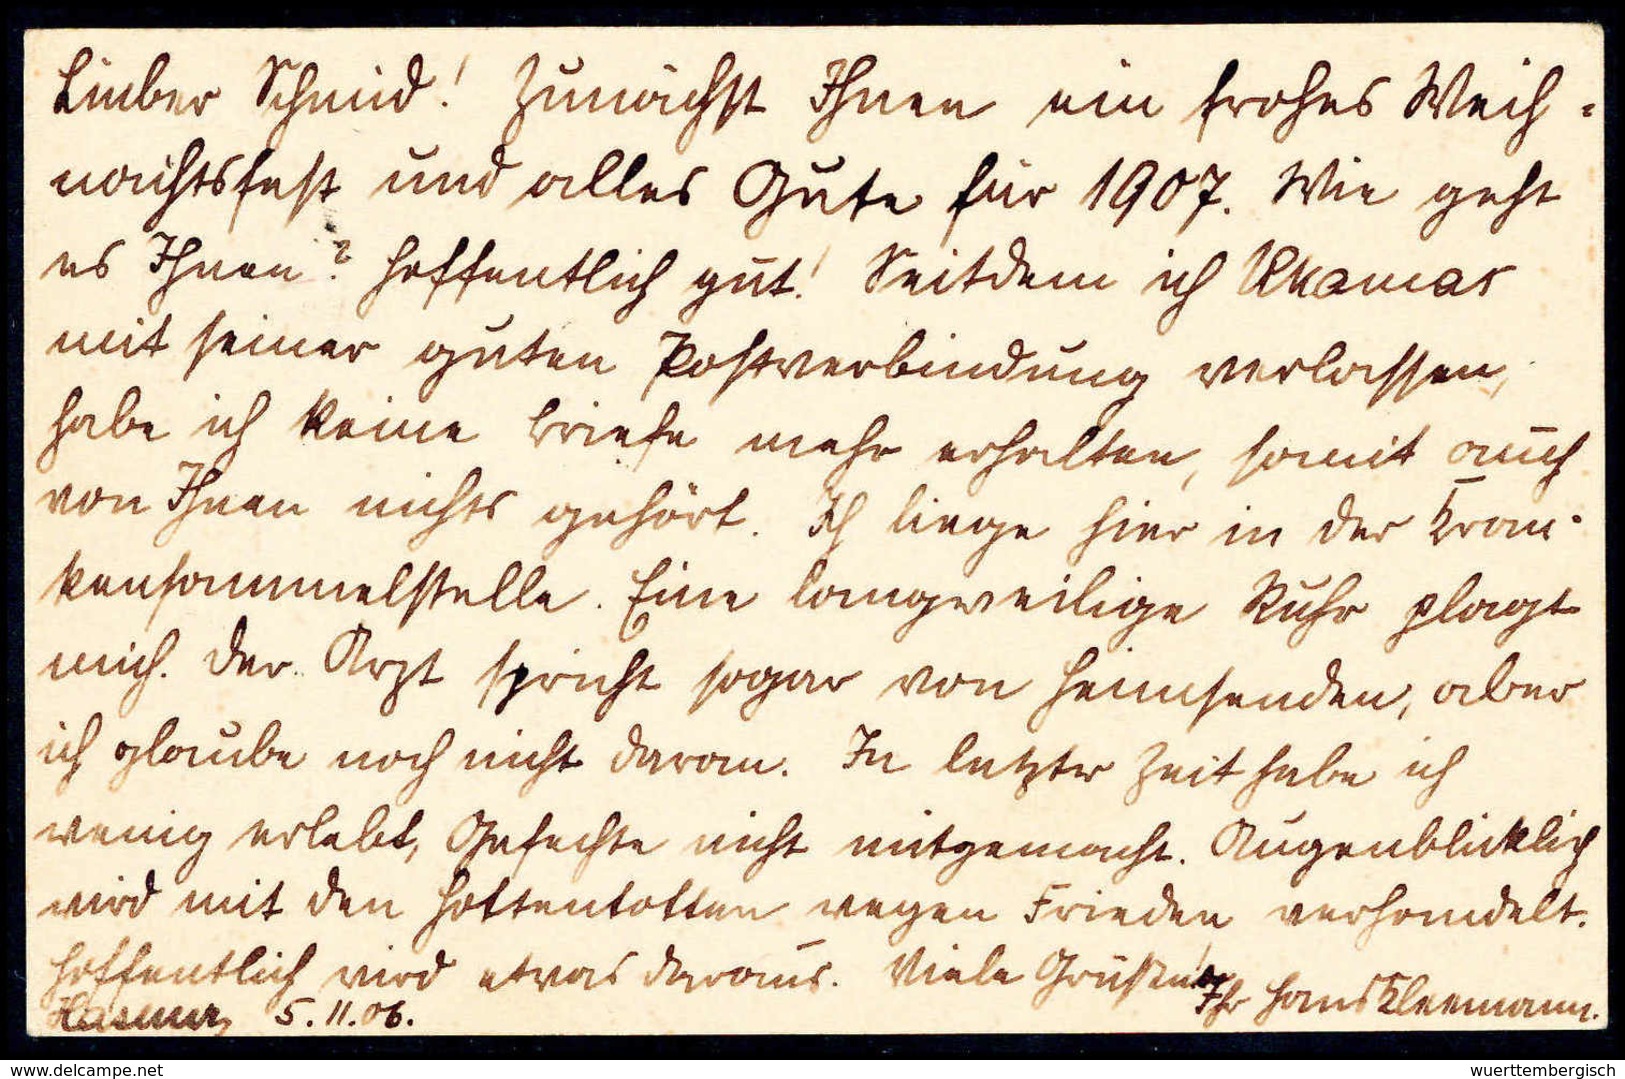 Lieber Schmid! Zunächst Ihnen ein frohes Weih-
nachtsfest und alles Gute für 1907. Wie geht
es Ihnen? Hoffentlich gut! Seitdem ich Ukamas
mit seiner guten Postverbindung verlassen,
habe ich keine Briefe mehr erhalten, somit auch
von Ihnen nichts gehört. Ich liege hier in der Kran-
kensammelstelle. Eine langweilige Ruhr plagt
mich. Der Arzt spricht sogar von Heimsenden, aber
ich glaube noch nicht daran. In letzter Zeit habe ich
wenig erlebt, Gefechte nicht mitgemacht. Augenblicklich
wird mit den Hottentotten wegen Frieden verhandelt.
Hoffentlich wird etwas daraus. Viele Grüsse!
Ihr Hans Kleemann.
5.11.06.
www.delcampe.net
wuerttembergisch